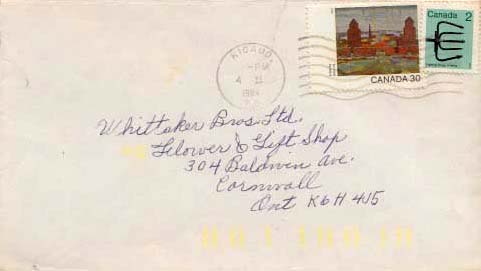 KIGAUD
PM
4 II
1984
P.Q.
CANADA 30
Canada 2
Whittaker Bros. Ltd.
Flower & Gift Shop
304 Baldwin Ave.
Cornwall
Ont K6H 4J5